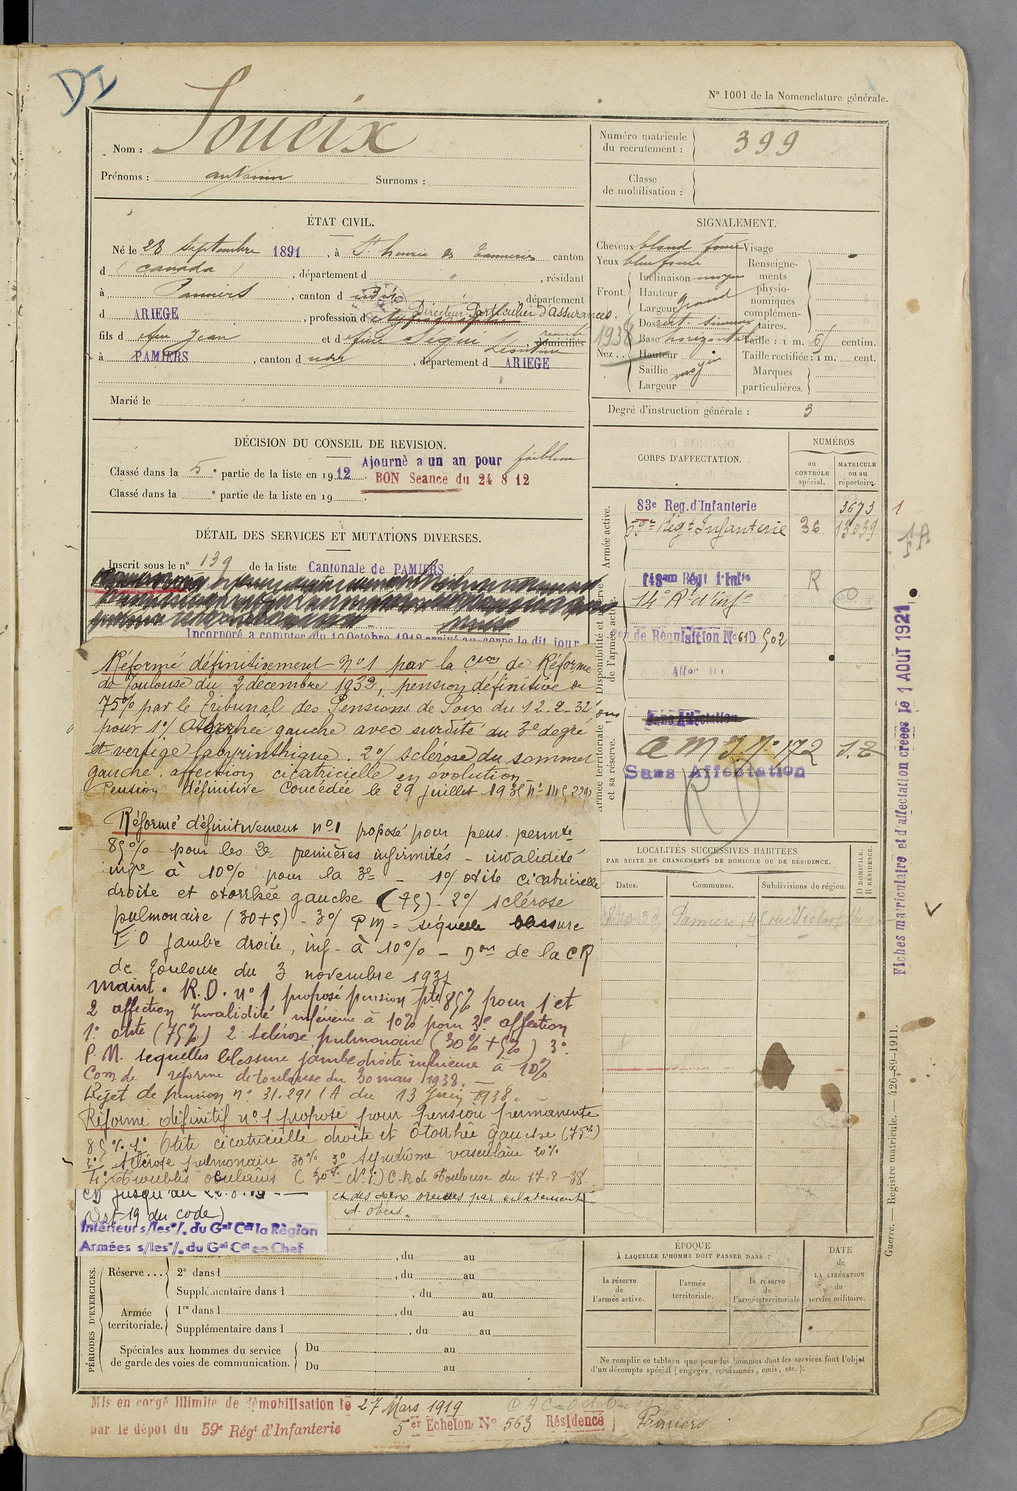 DI
N° 1001 de la Nomenclature générale.
Nom : Soueix
Prénoms : Antonin Surnoms :
Numéro matricule du recrutement : 399
Classe de mobilisation :
ÉTAT CIVIL.
Né le 28 Septembre 1891, à St Henrie des Tanneries canton
d (Canada), département d " , résidant
à Pamiers, canton d udit, département
d ARIEGE, profession d Directeur Particulier d'Assurances.
fils d efeu Jean et d Séguy Léontine domiciliés
à PAMIERS, canton d udit, département d ARIEGE
Marié le
SIGNALEMENT.
Cheveux blond foncé Visage
Yeux bleu foncé Renseignements physionomiques complémentaires.
Front. Inclinaison moyen
Hauteur
Largeur grand
1938
Nez. Dos rect. sinueux
Base horizontal Taille : 1 m. 61 centim.
Hauteur Taille rectifiée : 1 m. cent.
Saillie moyen Marques particulières.
Largeur
Degré d'instruction générale : 3
DÉCISION DU CONSEIL DE REVISION.
Classé dans la 5e partie de la liste en 1912 Ajourné a un an pour faiblesse
BON Seance du 24 8 12
Classé dans la e partie de la liste en 19
DÉTAIL DES SERVICES ET MUTATIONS DIVERSES.
Inscrit sous le n° 139 de la liste Cantonale de PAMIERS
Incorporé a compter du 10 Octobre 1912 arrivé au corps le dit jour
CORPS D'AFFECTATION.
NUMÉROS
au CONTRÔLE spécial.
MATRICULE ou au répertoire.
Armée active.
83e Reg. d'Infanterie 3673
59me Régt Infanterie 36 13039
Disponibilité et réserve de l'armée active.
14e Rt d'infie
de Réquisition N° 61D 502
Armée territoriale et sa réserve.
Sans Affectation
a m J. N° 172
Sans Affectation
Réformé définitivement n°1 par la Cion de Réforme
de Toulouse du 2 decembre 1932, pension définitive de
75% par le Tribunal des Pensions de Foix du 12-2-32
pour 1°/ Otorrhée gauche avec surdité du 3e degré
et vertige labyrinthique. 2°/ sclérose du sommet
gauche. affection cicatricielle en évolution
Pension définitive concédée le 29 juillet 193
Réformé définitivement n°1 proposé pour pens. permte
85% pour les 2 premières infirmités - invalidité
infre à 10% pour la 3e - 1°/ otite cicatricielle
droite et otorrhée gauche (75) - 2°/ sclérose
pulmonaire (30+5) - 3°/ P M = séquelle blessure
E O jambe droite, inf. à 10% - Don de la CR
de Toulouse du 3 novembre 1937
Maint. R.D. n°1 proposé pension pte 85% pour 1 et
2 affection Invalidité inférieure à 10% pour 3e affection
1° otite (75%) 2 sclérose pulmonaire (30% + 5%) 3°
P.M. sequelles blessure jambe droite inférieure à 10%
Com de reforme de toulouse du 30 mars 1938.
Rejet de pension n° 31.291 IA du 13 Juin 1938.
Réformé définitif n°1 proposé pour Pension permanente
85% 1° Otite cicatricielle droite et Otorrhée gauche (75%)
2° Sclérose pulmonaire 30% 3° Syndrome vasculaire 20%
4° Troubles oculaires C.R. de Toulouse du 17-8-38
(Art-19 du code)
Intérieur s/les °/. du Gal Ct la Règion
Armées s/les °/. du Gal Ct en Chef
et des deux oreilles par éclatement
d'obus.
LOCALITÉS SUCCESSIVES HABITÉES
PAR SUITE DE CHANGEMENTS DE DOMICILE OU DE RÉSIDENCE.
Dates. Communes. Subdivisions de région. D DOMICILE. R RÉSIDENCE.
Pamiers, 4
ÉPOQUE
À LAQUELLE L'HOMME DOIT PASSER DANS :
la réserve de l'armée active.
l'armée territoriale.
la réserve de l'armée territoriale
DATE de LA LIBÉRATION du service militaire.
Ne remplir ce tableau que pour les hommes dont les services font l'objet
d'un décompte spécial (engagés, condamnés, omis, etc.).
PÉRIODES D'EXERCICES.
, du au
Réserve . . . 2e dans l , du au
Supplémentaire dans l , du au
Armée territoriale. 1re dans l , du au
Supplémentaire dans l , du au
Spéciales aux hommes du service de garde des voies de communication. Du au
Du au
Mis en congé illimité de démobilisation le 27 Mars 1919
par le dépot du 59e Régt d'Infanterie 5er Echelon N° 563 Résidence Pamiers
Fiches matriculaire et d'affectation créées le 1 AOUT 1921
Guerre. — Registre matricule. — 426-89-1911.